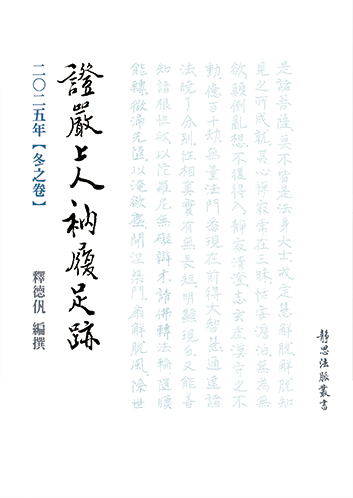 靜思法脈叢書
是諸菩薩莫不皆是法身大士戒定慧解脫解脫知
見之所成就其心禪寂常在三昧恬安澹泊無為無
欲顛倒亂想不復得入靜寂清澄志玄虛漠守之不
動億百千劫無量法門悉現在前得大智慧通達諸
法曉了分別性相真實有無長短明顯現白又能善
知諸根性欲以陀羅尼無礙辯才諸佛轉法輪隨順
能轉微渧先墮以淹欲塵開涅槃門扇解脫風除世
證嚴上人衲履足跡
二〇二五年【冬之卷】
釋德㐽 編撰